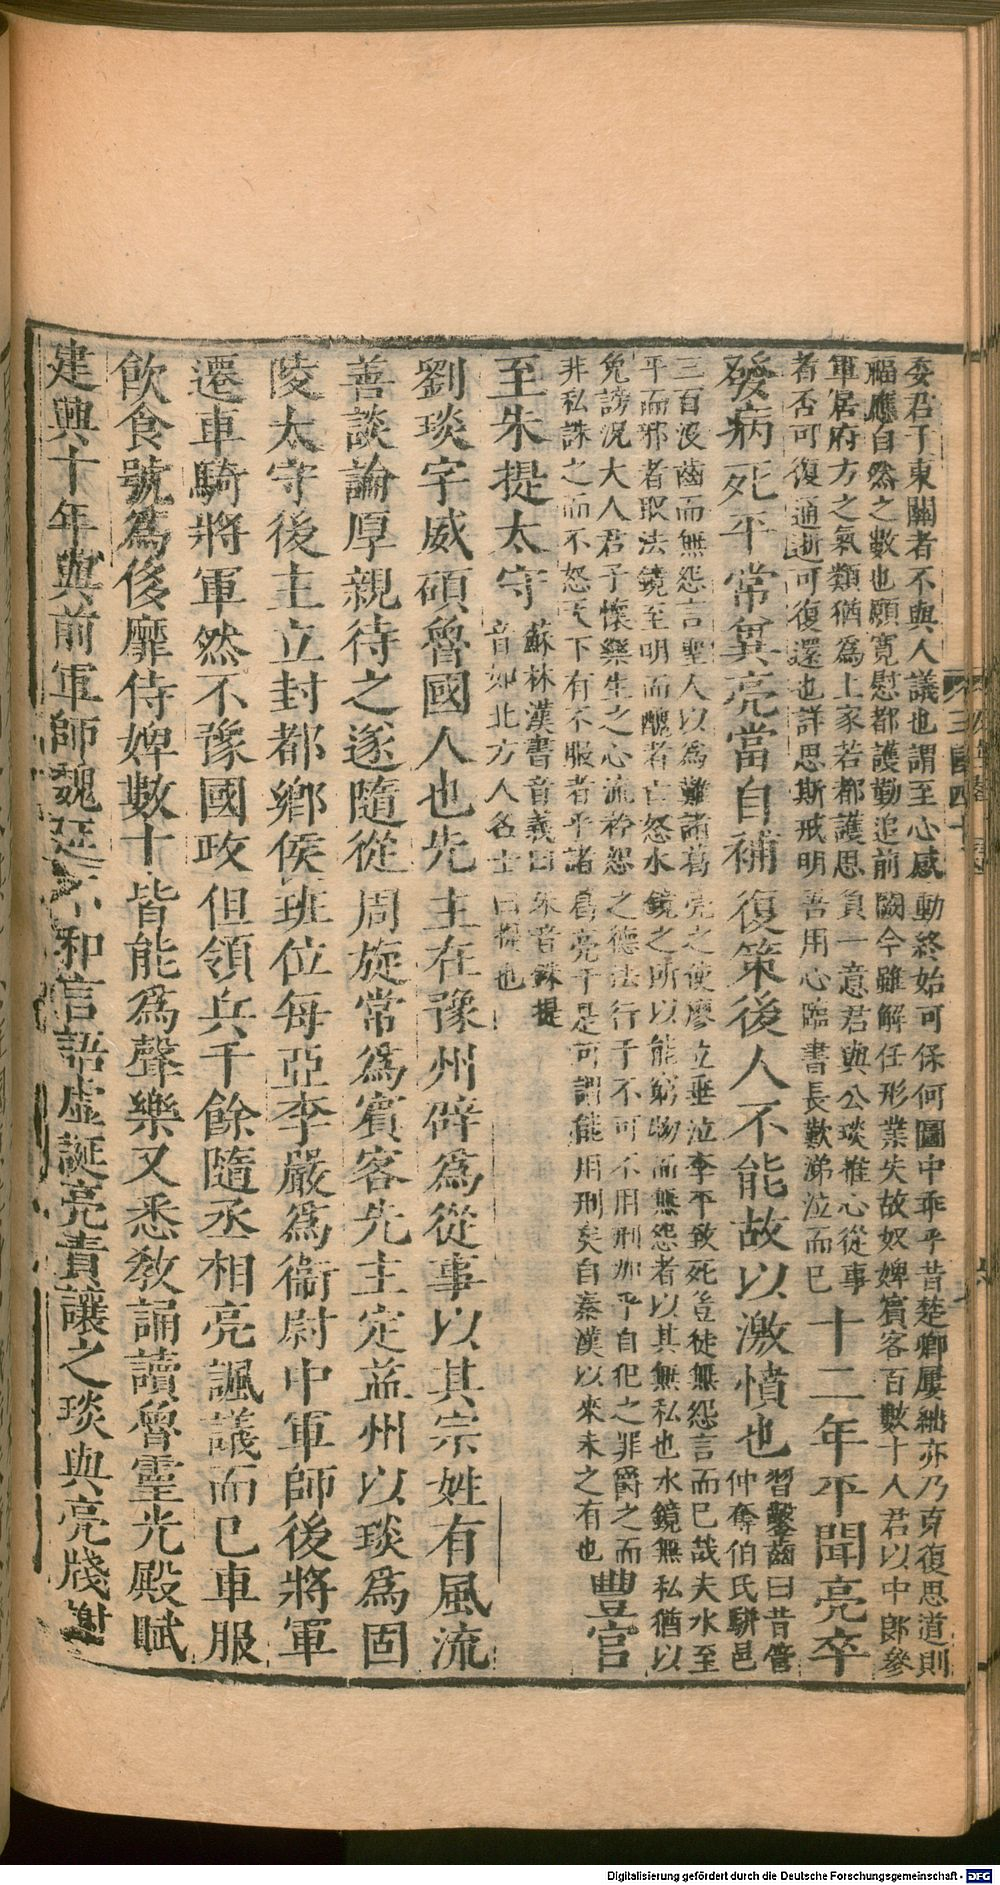 委君于東關者不與人議也謂至心感動終始可保何圖中乖乎昔楚卿屢絀亦乃克復思道則
福應自然之數也願寬慰都護勤追前闕今雖解任形業失故奴婢賓客百數十人君以中郎參
軍居府方之氣類猶爲上家若都護思負一意君與公琰推心從事
者否可復通逝可復還也詳思斯戒明吾用心臨書長歎涕泣而已
十二年平聞亮卒
發病死平常冀亮當自補復策後人不能故以激憤也
習鑿齒曰昔管
仲奪伯氏駢邑
三百沒齒而無怨言聖人以爲難諸葛亮之使廖立垂泣李平致死豈徒無怨言而已哉夫水至
平而邪者取法鏡至明而醜者亡怒水鏡之所以能窮物而無怨者以其無私也水鏡無私猶以
免謗況大人君子懷樂生之心流矜恕之德法行于不可不用刑加乎自犯之罪爵之而
非私誅之而不怒天下有不服者乎諸葛亮于是可謂能用刑矣自秦漢以來未之有也
豐官
至朱提太守
蘇林漢書音義曰朱音銖提
音如北方人名士曰提也
劉琰字威碩魯國人也先主在豫州辟爲從事以其宗姓有風流
善談論厚親待之遂隨從周旋常爲賓客先主定益州以琰爲固
陵太守後主立封都鄉侯班位每亞李嚴爲衞尉中軍師後將軍
遷車騎將軍然不豫國政但領兵千餘隨丞相亮諷議而已車服
飲食號爲侈靡侍婢數十皆能爲聲樂又悉敎誦讀魯靈光殿賦
建興十年與前軍師魏延不和言語虛誕亮責讓之琰與亮牋謝
三國四十
Digitalisierung gefördert durch die Deutsche Forschungsgemeinschaft - DFG